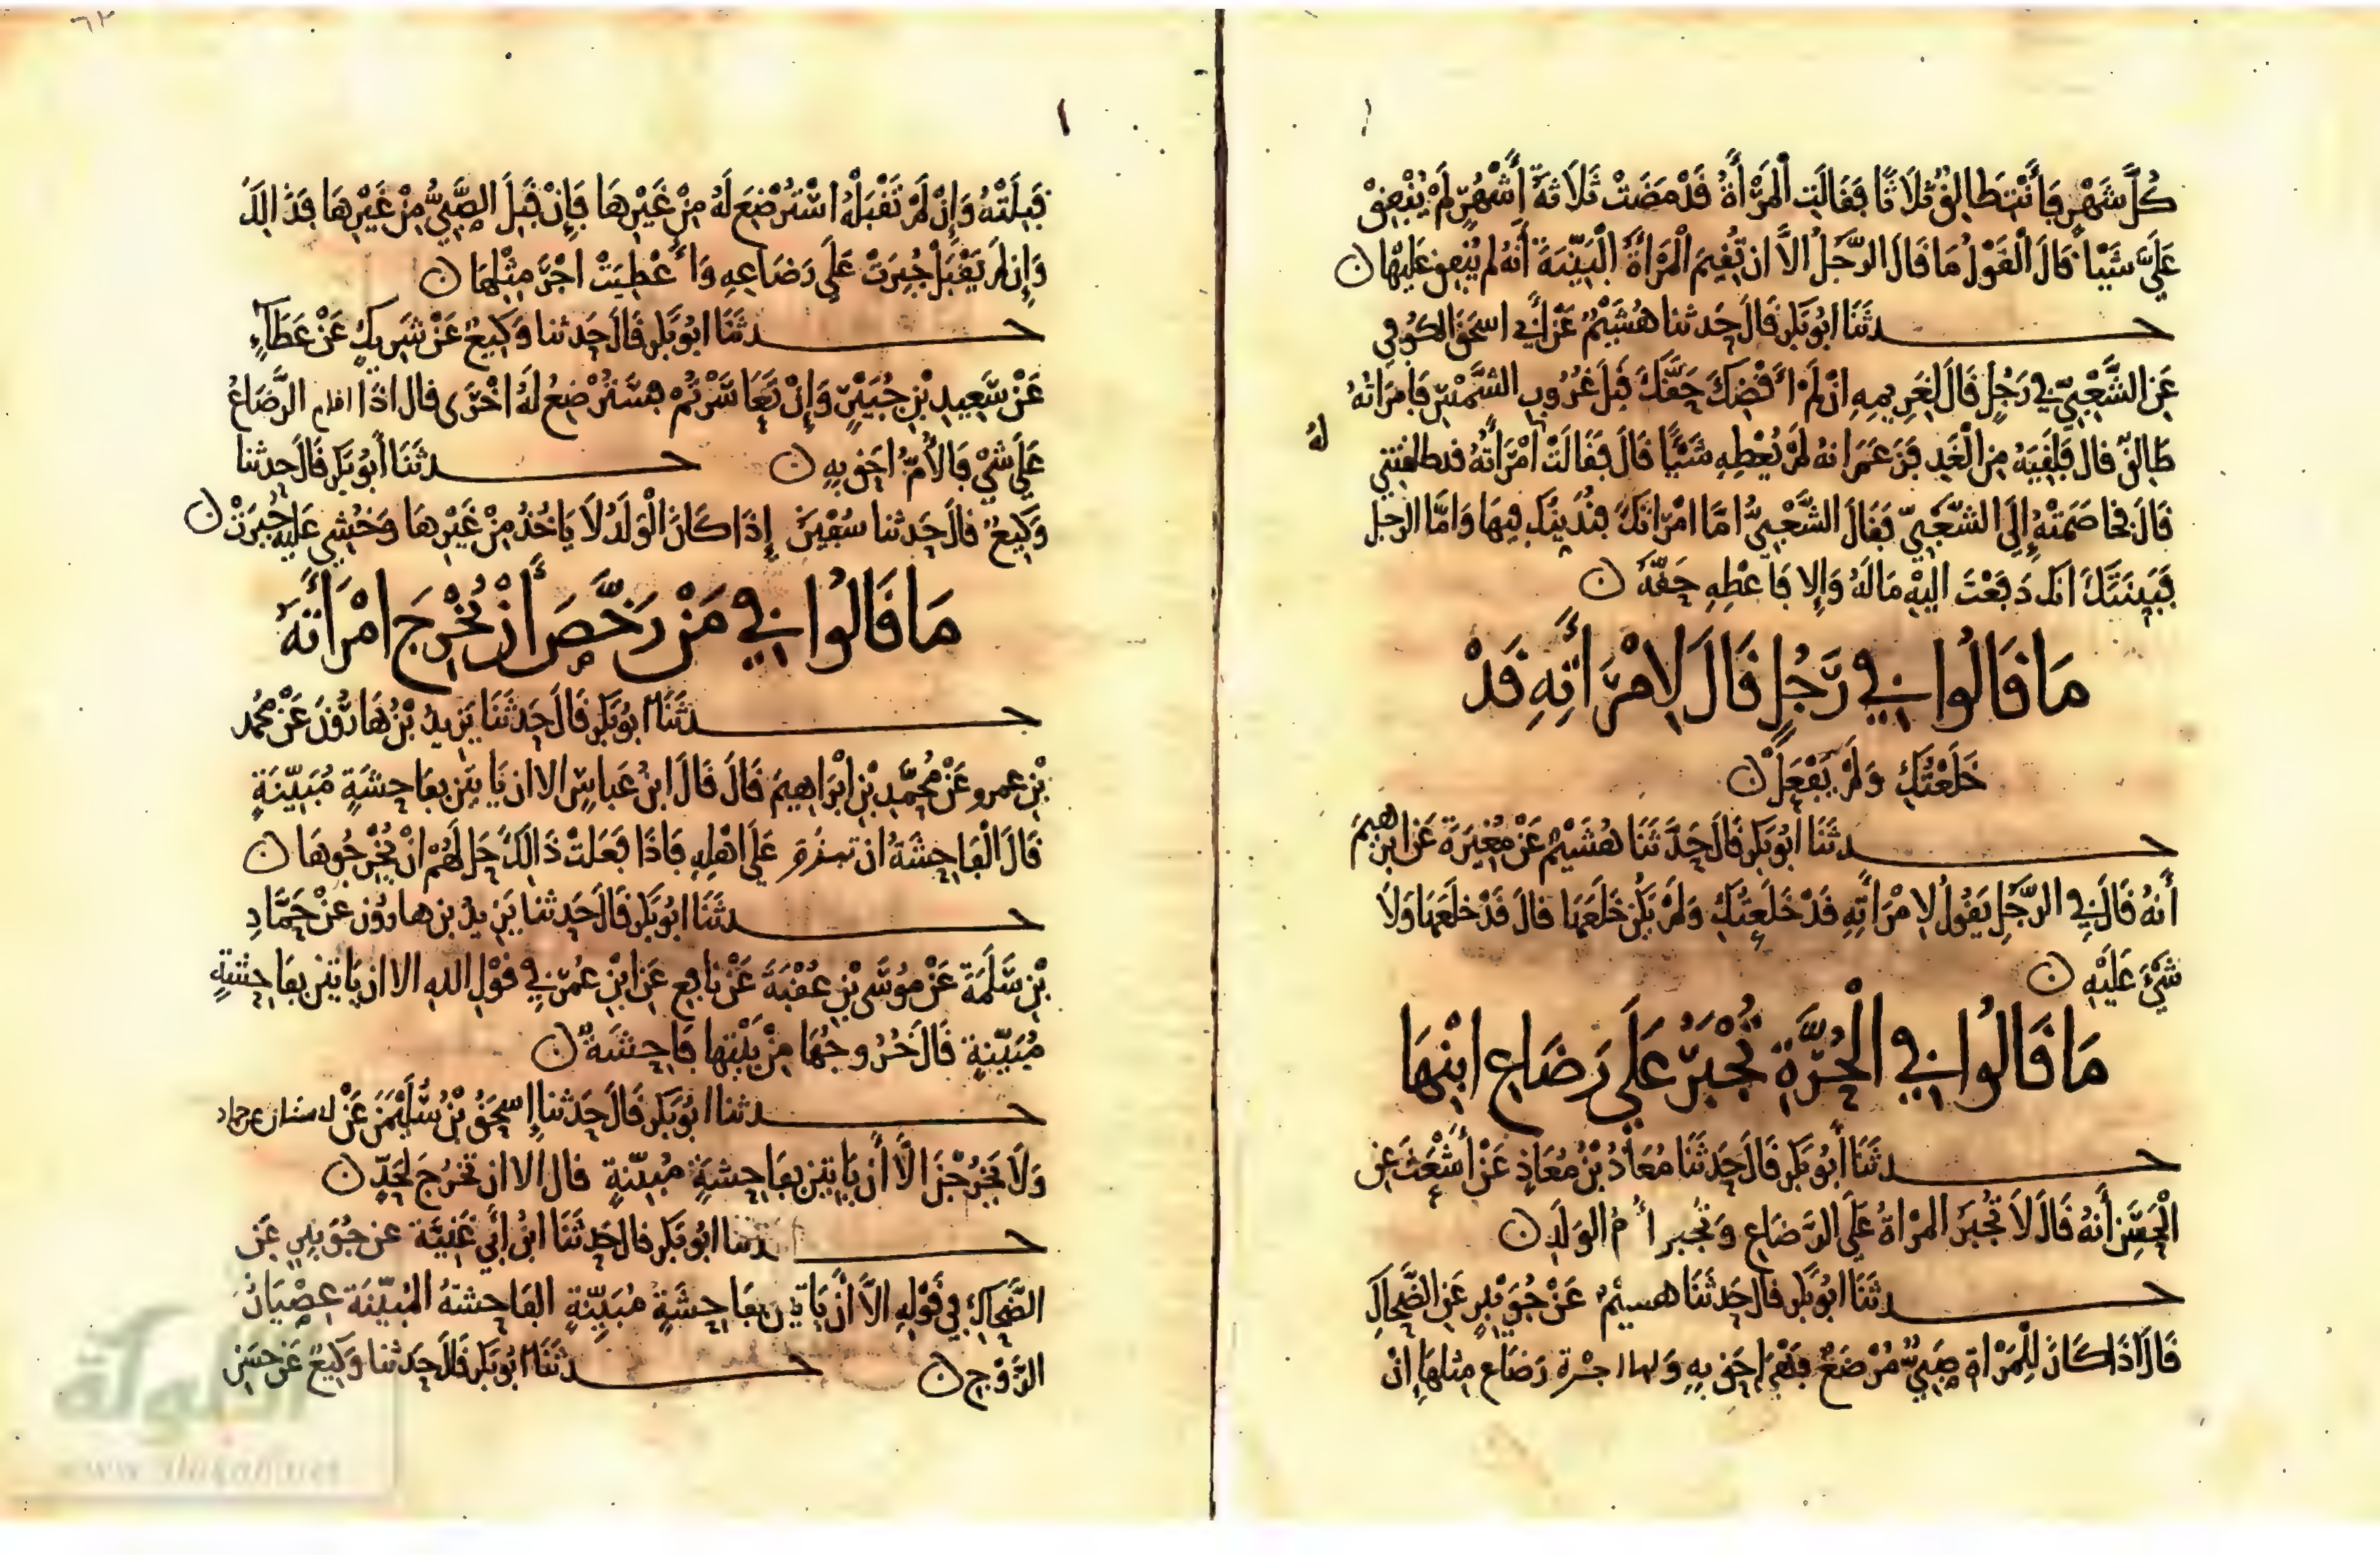 كُلَّ شَهْرٍ فَأَنْتِ طَالِقٌ ثَلَاثًا فَقَالَتِ الْمَرْأَةُ قَدْ مَضَتْ ثَلَاثَةُ أَشْهُرٍ لَمْ يُنْفِقْ
عَلَيَّ شَيْئًا قَالَ الْقَوْلُ مَا قَالَ الرَّجُلُ إلَّا ان تُقِيمَ الْمَرْأَةُ الْبَيِّنَةَ أَنَّهُ لم يُنْفِقْ عَلَيْهَا
حدثَنَا ابُو بَكْرٍ قَالَ حَدثنا هُشَيْمٌ عَنْ أَبِي اسحَقَ الكُوفِي
عَنِ الشَّعْبِيِّ فِي رَجُلٍ قَالَ لِغَرِيمِهِ انْ لَمْ أَقْضِكَ حَقَّكَ قَبْلَ غُرُوبِ الشَّمْسِ فَامْرَاتُهُ
لَهُ
طَالِقٌ قال فَلَقِيَهُ مِنَ الْغَدِ فَزَعَمَ انهُ لَمْ يُعْطِهِ شَيْئًا قَالَ فَقَالَتْ امْرَأَتُهُ قد طلقتني
قَالَ فَخَاصَمَتْهُ إِلَى الشَّعْبِيِّ فَقَالَ الشَّعْبِيُّ امَّا امْرَاتُكَ فَنُدَيِّنُكَ فِيهَا وَامَّا الرجل
فَبَيِّنَتُكَ انك دَفَعْتَ الَيْهِ مَالَهُ وَإِلا فَأَعْطِهِ حَقَّهُ
مَا قَالُوا فِي رَجُلٍ قَالَ لِامْرَأَتِهِ قَدْ
خَلَعْتُكِ وَلَمْ يَفْعَلْ
حدثَنَا أَبُو بَكْرٍ قَالَ حَدَّثَنَا هُشَيْمٌ عَنْ مُغِيرَةَ عَنْ ابرهيمَ
أَنَّهُ قَالَ فِي الرَّجُلِ يَقُولُ لِامْرَأَتِهِ قَدْ خَلَعْتُكِ وَلَمْ يَكُنْ خَلَعَهَا قالَ قَدْ خَلَعَهَا وَلَا
شَيْءَ عَلَيْهِ
مَا قَالُوا فِي الْحُرَّةِ تُجْبَرُ عَلَى رَضَاعِ ابْنِهَا
حدثَنَا أَبُو بَكْرٍ قَالَ حَدثَنَا مُعَاذُ بْنُ مُعَاذٍ عَنْ أَشْعَثَ عَنِ
الْحَسَنِ أَنَّهُ قَالَ لَا تُجْبَرُ المرْاةُ عَلَى الرَّضَاعِ وَتُجْبَر أُمُّ الوَلَدِ
حدثَنَا ابُو بَكْرٍ قال حَدثَنَا هُشيمٌ عَنْ جُوَيْبِرٍ عَنِ الضَّحَّاكِ
قَالَ اذَا كَانَ لِلْمَرْاةِ صَبِيٌّ مُرْضَعٌ فَهِيَ احَق بِهِ وَلَهَا اجْرة رَضَاعِ مِثلِهَا إِنْ
قَبِلَتْهُ وَإِنْ لَمْ تَقْبَلْهُ اسْتُرْضِعَ لَهُ مِنْ غَيْرِهَا فَإِنْ قَبِلَ الصَّبِيُّ مِنْ غَيْرِهَا فَذَالكَ
وَإِن لَمْ يَقْبَلْ جُبِرَتْ عَلَى رَضَاعِهِ وَأُعْطِيَتْ اجْرَ مِثْلِهَا
حدثَنَا ابُو بَكْرٍ قَالَ حَدثنا وَكِيعٌ عَنْ شَرِيكٍ عَنْ عَطَآءٍ
عَنْ سَعِيدِ بْنِ جُبَيْرٍ وَإِنْ تَعَاسَرْتُمْ فَسَتُرْضِعُ لَهُ اخْرَى قال اذَا اقام الرَّضَاعُ
عَلَى شَيْءٍ فَالْأُمُّ احَق بِهِ حدثَنَا أَبُو بَكْرٍ قَالَ حَدثنا
وَكِيعٌ قالَ حَدثنا سُفْيَنُ إِذَا كَانَ الْوَلَدُ لَا يَاخُذُ مِنْ غَيْرِهَا وَخُشِي عَلَيْهِ جُبِرَتْ
مَا قَالُوا فِي مَنْ رَخَّصَ أَنْ تُخْرَجَ امْرَأَتُهُ
حدثَنَا ابُو بَكْرٍ قَالَ حَدثَنَا يَزِيدُ بْنُ هَارُونَ عَنْ مُحَمد
بْنِ عمرو عَنْ مُحَمَّدِ بْنِ ابْرَاهِيمَ قَالَ قَالَ ابنُ عَباسٍ الا ان يَاتِينَ بِفَاحِشَةٍ مُبَيِّنَةٍ
قَالَ الْفَاحِشَةُ ان علَى اهْلِهِ فَاذَا فَعَلَتْ ذَالِكَ حَل لَهُمْ انْ يُخْرِجُوهَا
حدثَنَا ابُو بَكْرٍ قَالَ حَدثنا يَزِيدُ بن هارُون عَنْ حَمَّادِ
بْنِ سَلَمَةَ عَنْ مُوسَى بْنِ عُقْبَةَ عَنْ نَافِعٍ عَنِ ابْنِ عُمَرَ فِي قَوْلِ اللهِ الا ان يَاتِينَ بِفَاحِشَةٍ
مُبَيِّنَةٍ قَالَ خُرُوجُهَا مِنْ بَيْتِهَا فَاحِشَةٌ
حدثنا ابُو بَكْرٍ قَالَ حَدثنا إِسحَقُ بْنُ سُلَيْمَنَ عَنْ حماد
وَلَا يَخْرُجْنَ الَّا أَنْ يَاتِينَ بِفَاحِشَةٍ مُبَيِّنَةٍ قال الا ان تَخْرُجَ لِحَدٍّ
حدثنا ابُو بَكْرٍ قال حَدثَنَا ابْنُ أَبِي غَنِيَّةَ عن جُوَيْبِرٍ عَن
الضَّحَّاكِ فِي قَوْلِهِ الَّا أَنْ يَاتِينَ بِفَاحِشَةٍ مُبَيِّنَةٍ الفَاحِشَةُ المُبَيِّنَةُ عِصْيَانُ
الزَّوْجِ حدثَنَا ابُو بَكْرٍ قَالَ حَدثنا وَكِيعٌ عَنْ حَسَنِ
الألوكة
www.alukah.net